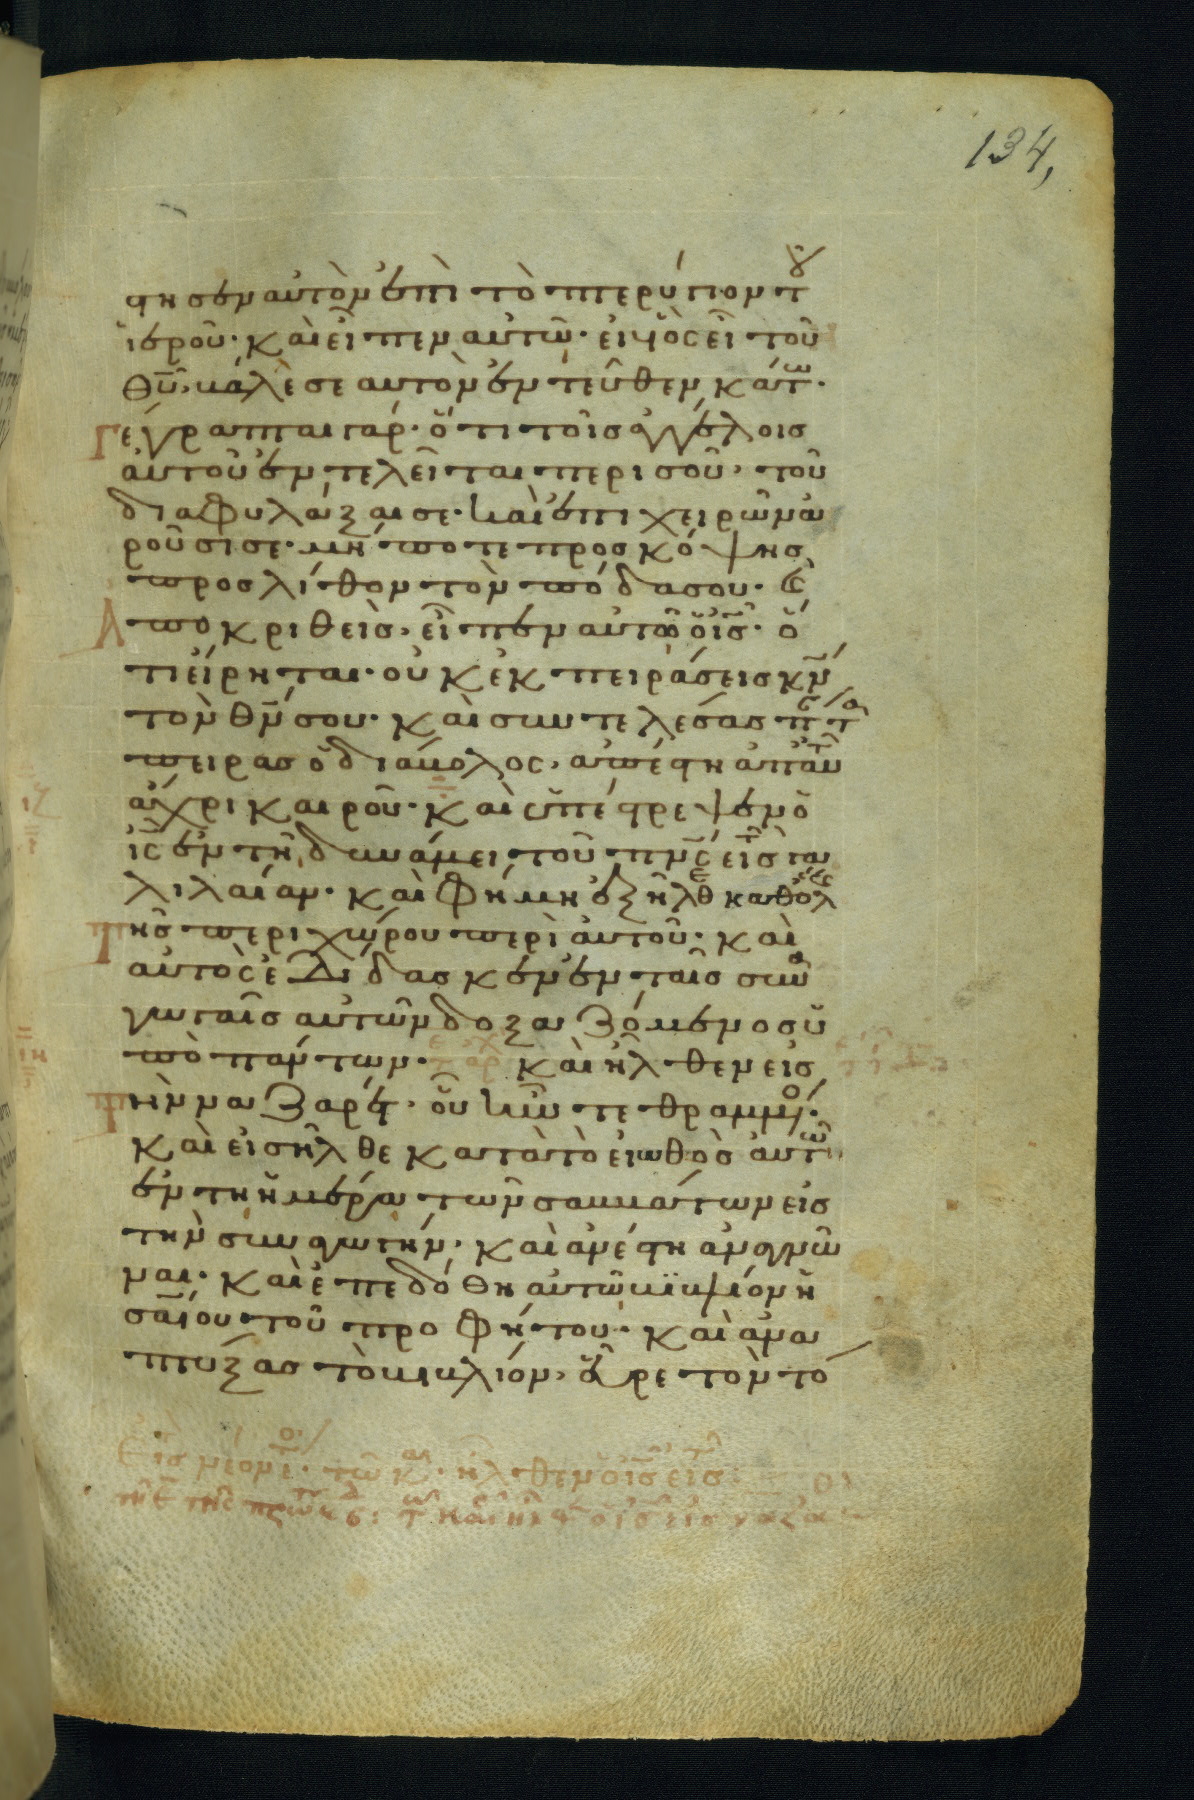 134,
στησεν αὐτὸν ἐπὶ τὸ πτερύγιον τοῦ
ἱεροῦ· καὶ εἶπεν αὐτῶ· εἰ υἱὸς εἶ τοῦ
θῦ, βάλε σεαυτὸν ἐντεῦθεν κάτω·
Γέγραπται γάρ· ὅτι τοῖς ἀγγέλοις
αὐτοῦ ἐντελεῖται περι σοῦ, τοῦ
διαφυλάξαι σε· καὶ ἐπι χειρῶν ἀ
ροῦσι σε· μή ποτε προσκόψης
προς λίθον τὸν πόδα σου· Καὶ
Ἀποκριθεὶς, εἶπεν αὐτῶ ὁ ἰς̄· ὅ
τι εἴρηται· οὐκ ἐκπειράσεις κν̄
τὸν θν̄ σου· καὶ συντελέσας πάντα
πειρασ ὁ διάβολος, ἀπέστη ἀπ αὐτοῦ
ἄχρι καιροῦ· καὶ ὑπέστρεψεν ὁ
ις̄ ἐν τῆ δυνάμει τοῦ πνς̄ εἰς τὴν γα
λιλαίαν· καὶ φήμη ἐξῆλθε καθ ὅλης
Τῆς περιχώρου περὶ αὐτοῦ· καὶ
αὐτὸς ἐδίδασκεν ἐν ταῖς συνα
γωγαῖς αὐτῶν δοξαζόμενος ὑ
πὸ πάντων· καὶ ἦλθεν εἰς
Τὴν ναζαρέτ· οὗ ἦν τεθραμμένος·
καὶ εἰσῆλθε κατὰ τὸ εἰωθὸς αὐτῶ
ἐν τῆ ἡμέρα τῶν σαββάτων εἰς
τὴν συναγωγήν· καὶ ἀνέστη ἀναγνῶ
ναι· καὶ ἐπεδόθη αὐτῶ βιβλίον ἡ
σαΐου τοῦ προφήτου· καὶ ἀνα
πτύξας τὸ βιβλίον, εὗρε τὸν τό